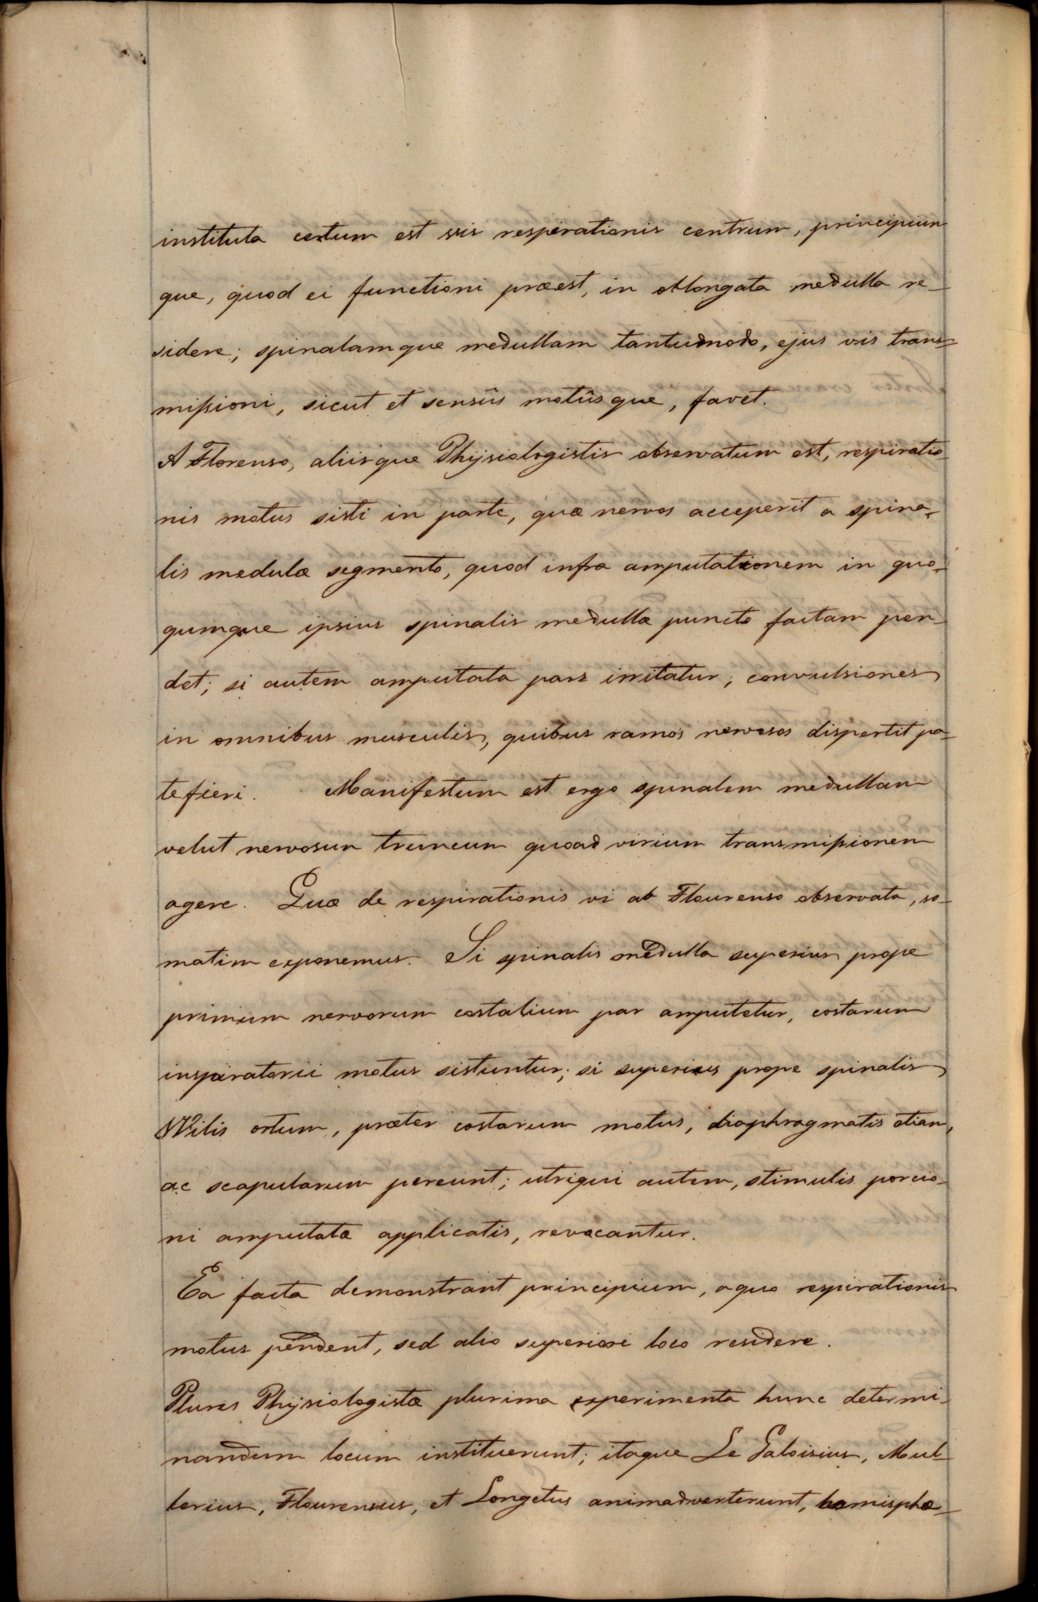 instituta certum est vis respirationis centrum, principium
que, quod ei functioni præest, in oblongata medulla re-
sidere; spinalamque medullam tantudmodo, ejus vis trans-
mißioni, sicut et sensûs motûsque, favet.
A Florenso, aliisque Physiologistis observatum est, respiratio-
nis motus sisti in parte, quæ nervos acceperit a spina-
lis medulæ segmento, quod infra amputationem in quo-
qumque ipsius spinalis medullæ puncto factam pen-
det; si autem amputata pars irritatur, convulsiones
in omnibus musculis, quibus ramos nervosos dispertit pa-
tefieri. Manifestum est ergo spinalem medullam
velut nervosum truncum quoad virium transmißionem
agere. Quæ de respirationis vi ab Flourenso observata, so-
matim exponemus. Si spinalis medulla superius prope
primum nervorum costalium par amputetur, costarum
inspiratorii motus sistuntur; si superius prope spinalis
Wilis ortum, præter costarum motus, diaphragmatis etiam,
ac scapularum pereunt; utriqui autem, stimulis porcio-
ni amputatæ applicatis, revocantur.
Ea facta demonstrant principium, a quo respirationis
motus pendent, sed alio superiori loco residere.
Plures Physiologistæ plurima experimenta hunc determi-
nandum locum instituerunt; itaque Le Galoisius, Mul-
lerius, Flourensus, et Longetus animadverterunt, hemisphæ-